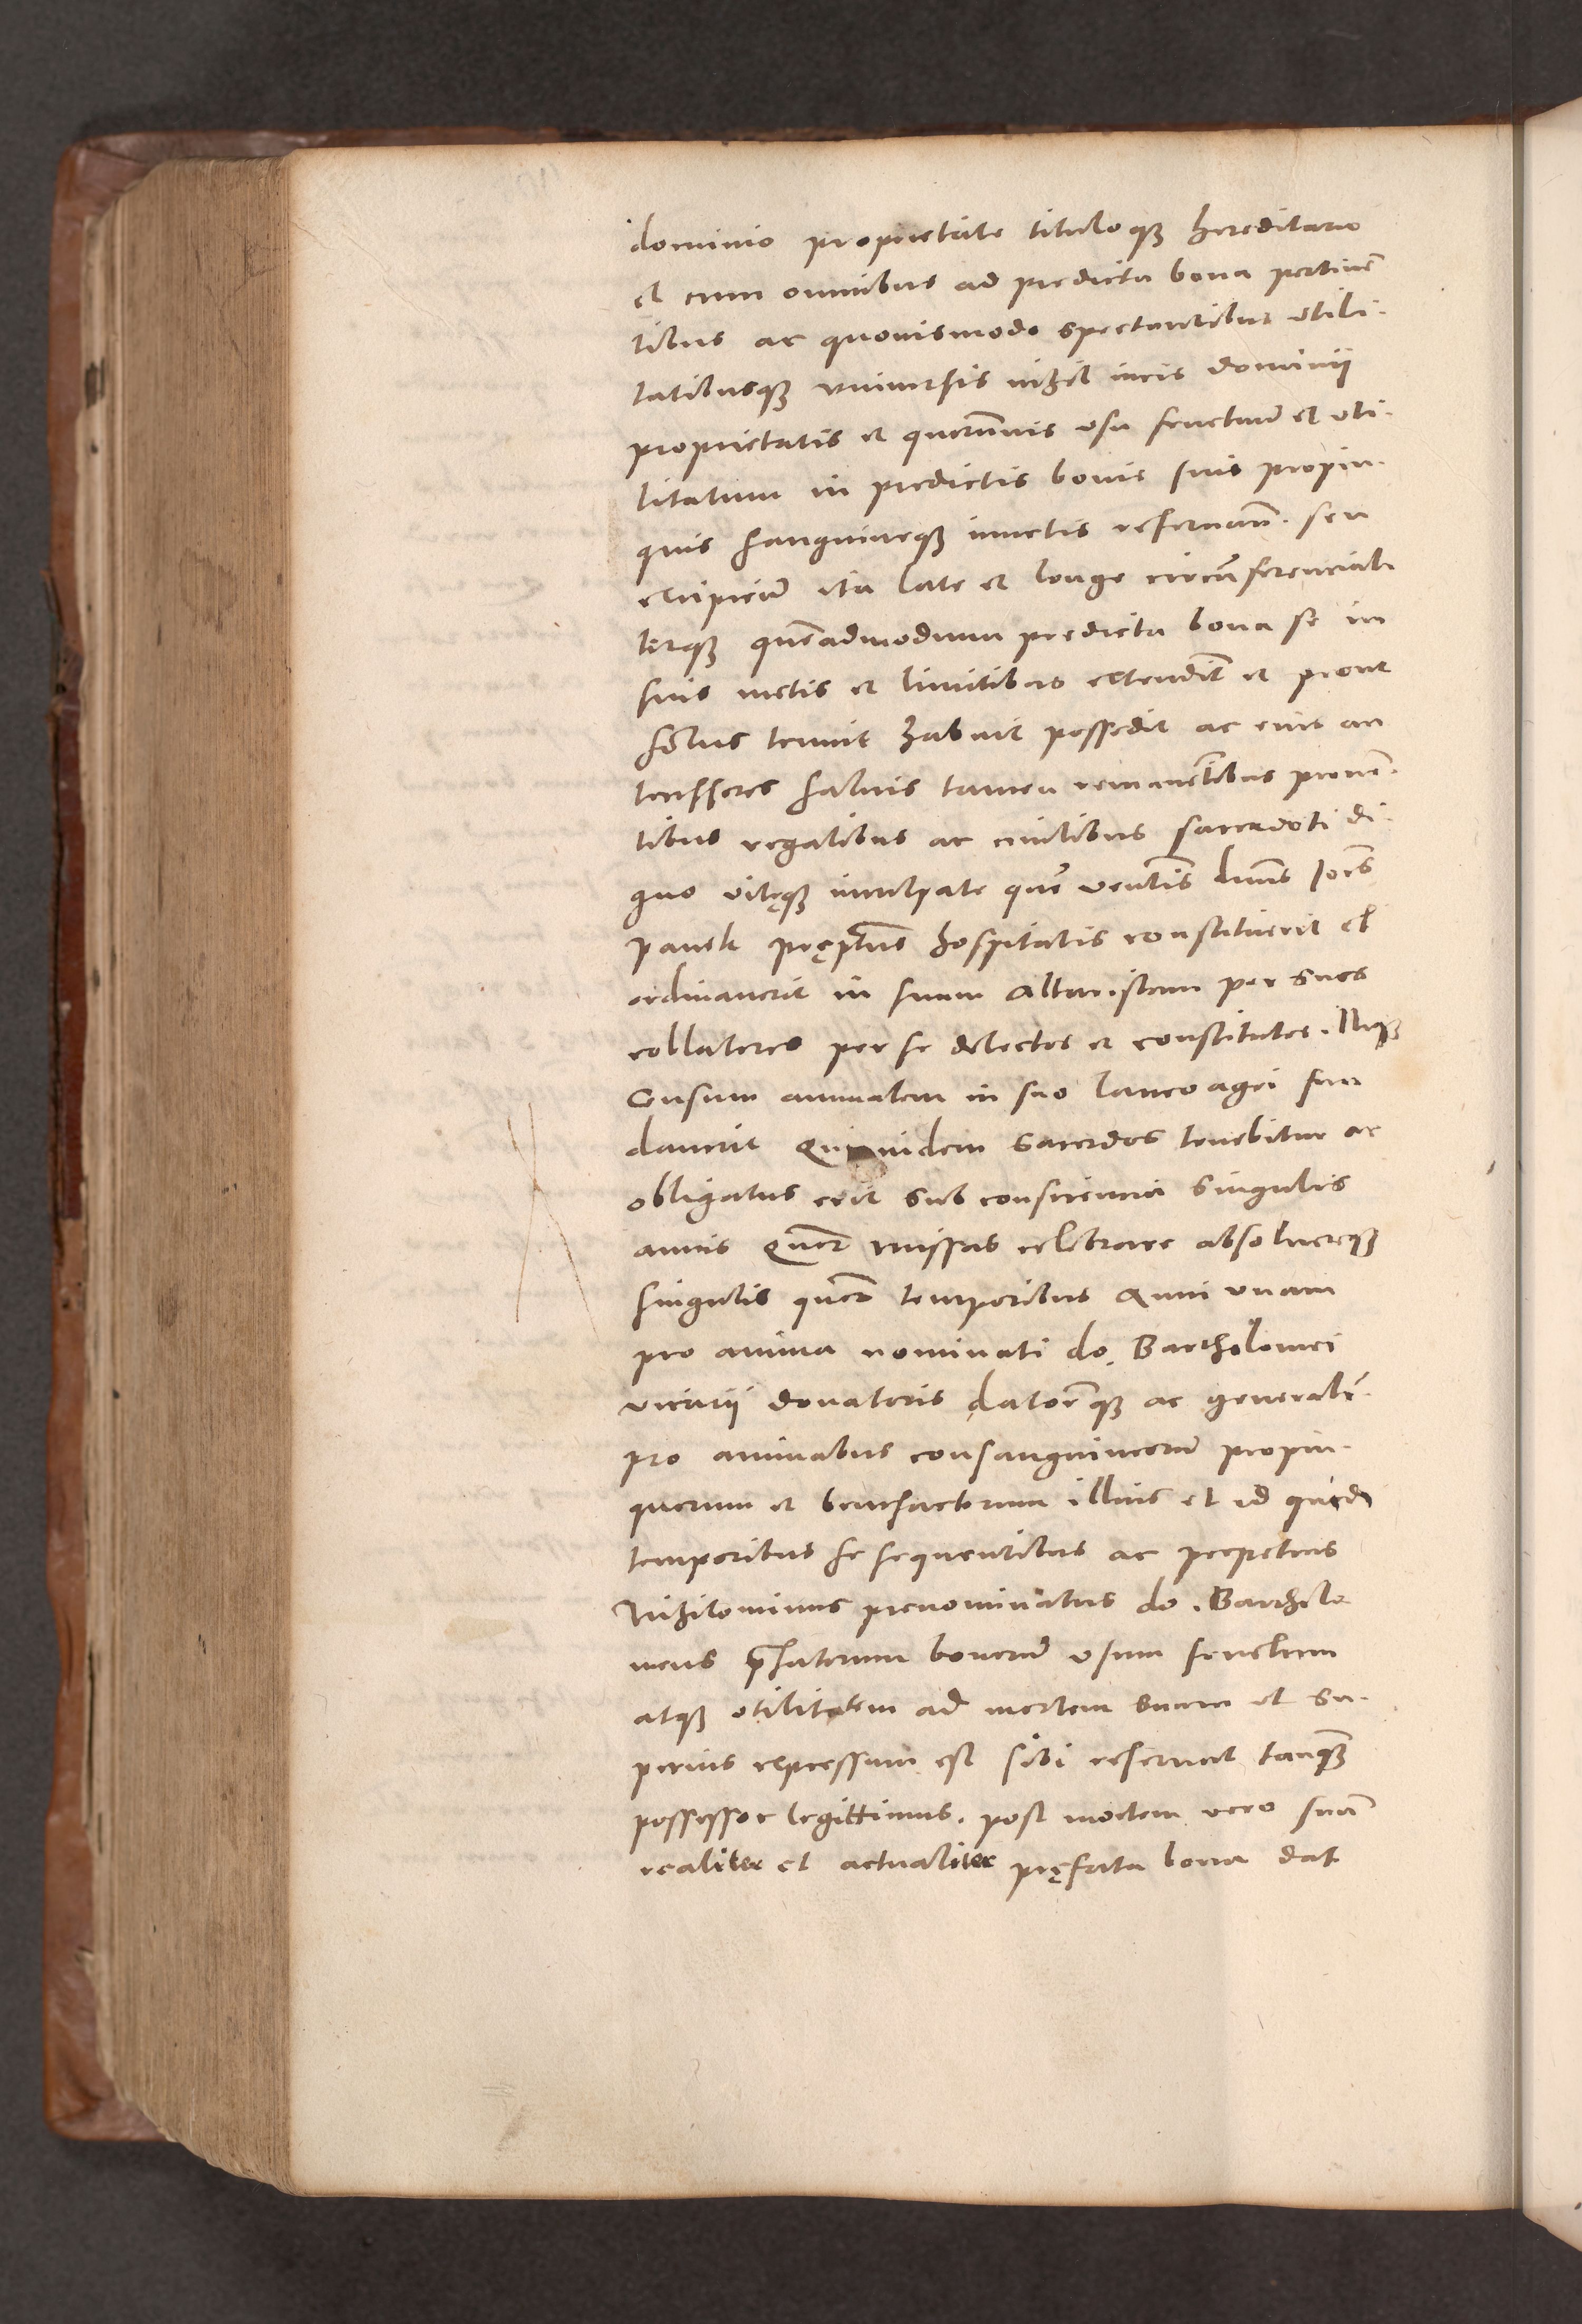 dominio proprietate tituloqꝫ hereditario
et cum omnibus ad predicta bona pertinē
tibus ac quouismodo spectantibus utili-
tatibusqꝫ vniuersis nihil iuris dominij
proprietatis et quorūuis usu fructuū et uti-
litatum in predictis bonis suis propin-
quis sanguineqꝫ iunctis reseruan̄. seu
excipieñ ita late et longe circūferenciali
terqꝫ quēadmodum predicta bona se in
suis metis et limitibus extendūt et prout
solus tenuit habuit possedit ac eius an
tecessores saluis tamen remanētibus prouen-
tibus regalibus ac ciuilibus sacerdoti di-
gno vitęqꝫ inculpate quē
pawel hospitalis constituerit et
ordinauerit in suum altaristam per suos
collatores per se delectos et constitutos. Nąqꝫ
Censum annualem in suo laneo agri fun
dauerit Qui quidem sacerdos tenebitur ac
obligatus erit sub consciencia singulis
annis quat̄ missas celebrare absoluereqꝫ
singulis quat̄ temporibus Anni vnam
pro anima nominati do. Bartholomei
vicarij donatoris datorisqꝫ ac generali͞.
pro animabus consanguineorū propin-
quorum et benefactorum illius et id quidē
temporibus se sequentibus ac perpetuis
Nihilominus prenominatus do. Bartholo
meus p̄fatorum bonorū usum fructum
atqꝫ utilitatem ad mortem suam ut su-
perius expressum est sibi reseruat tanqꝫ
possessor legittimus. post mortem vero suā
realiter et actualiter pręfata bona dat